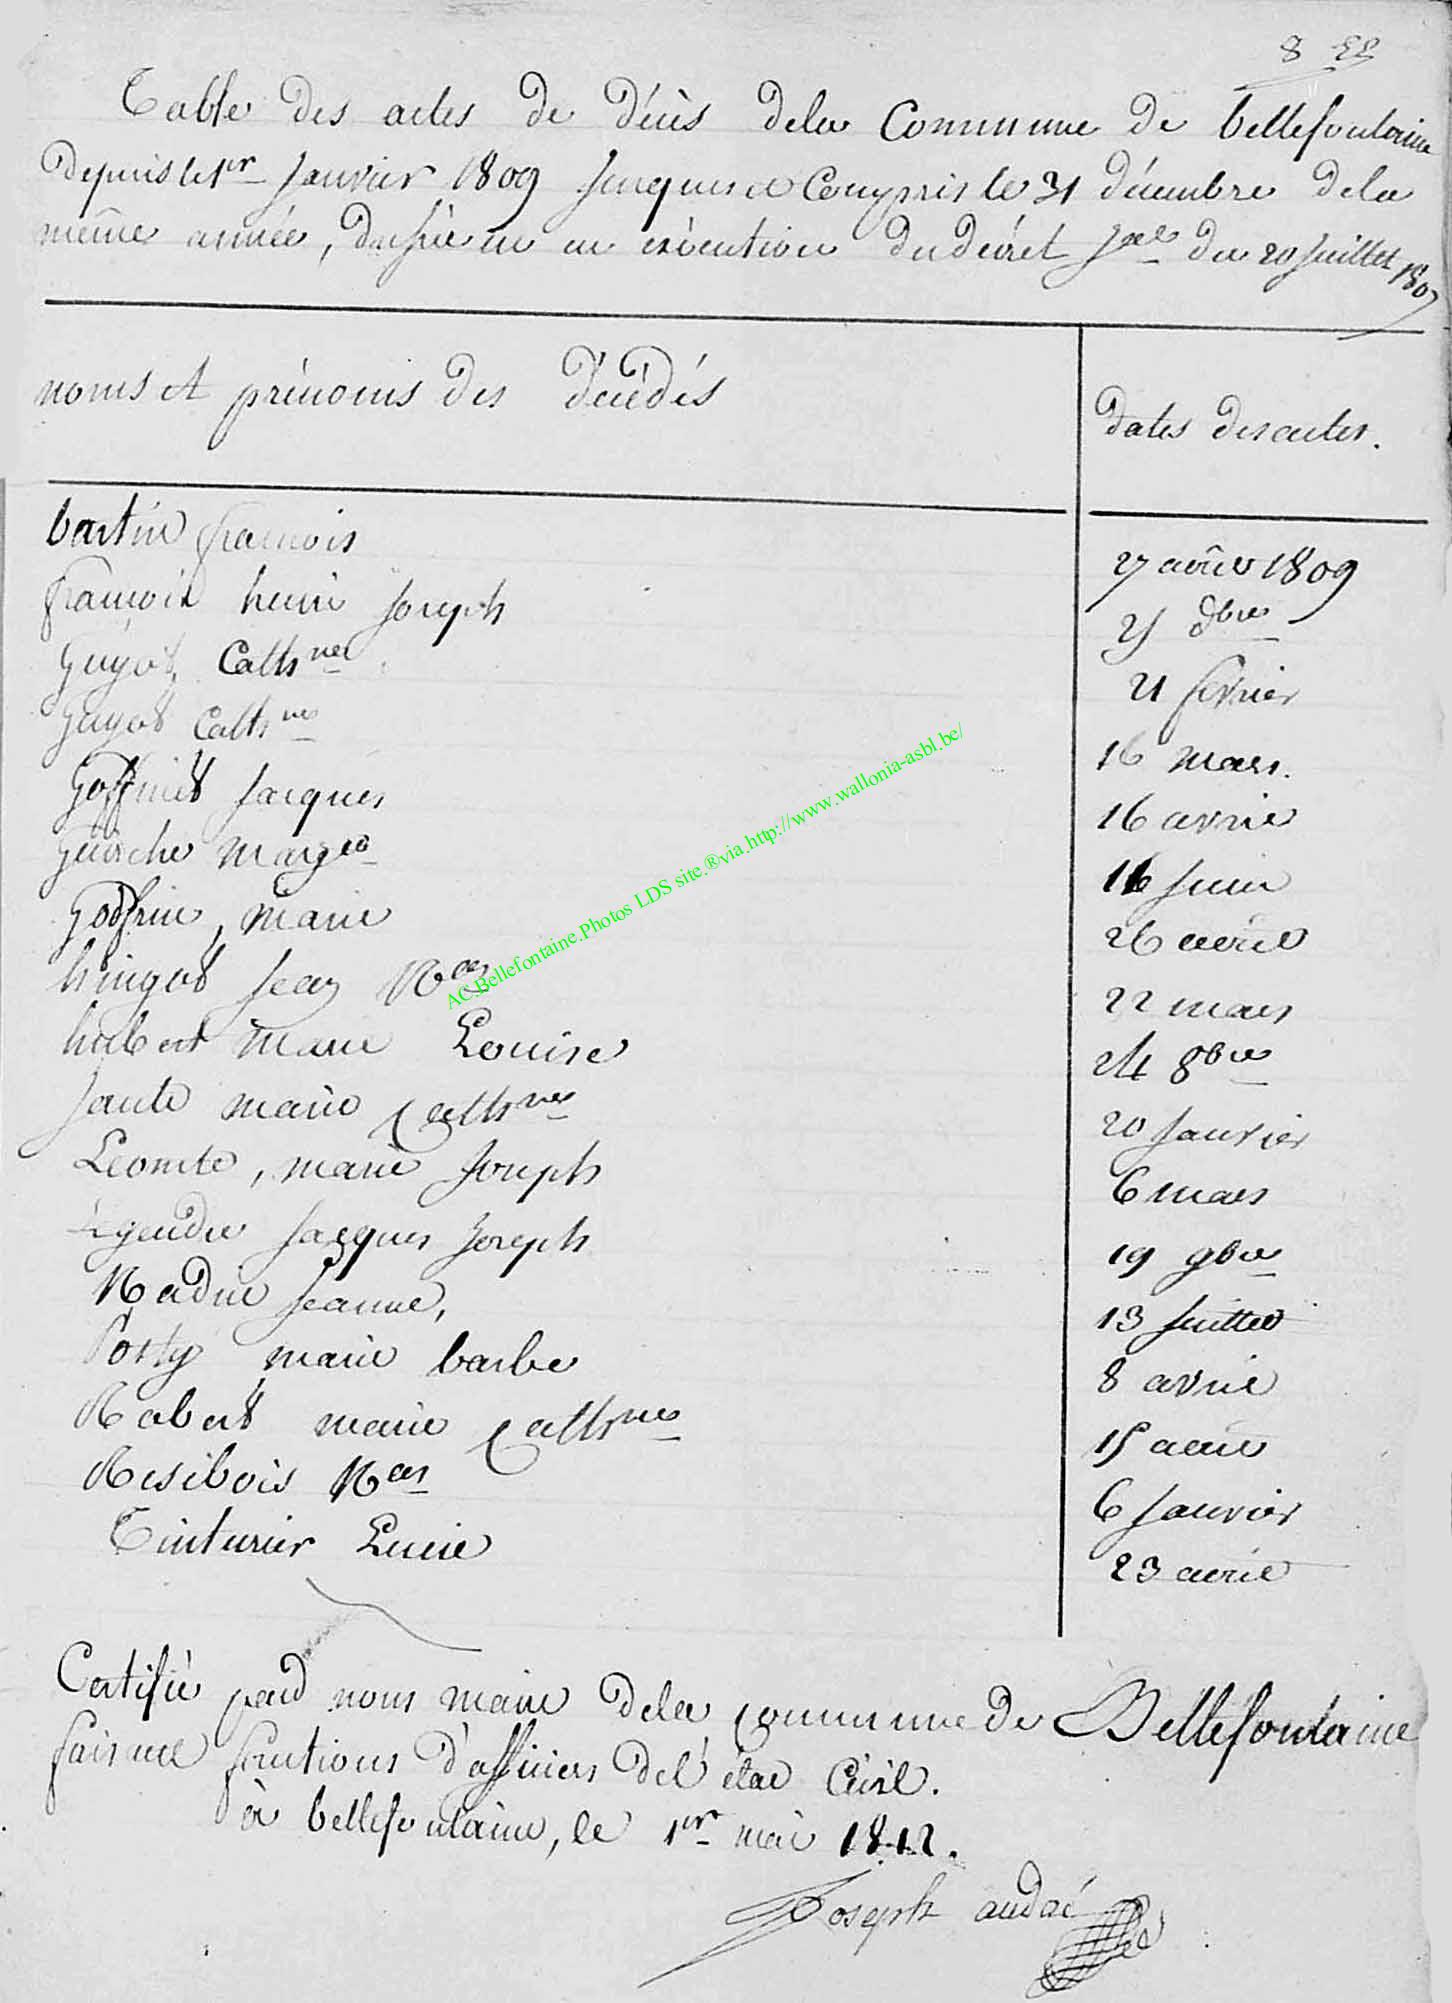 8
Table des actes de décès dela Commune de bellefontaine
Depuis le 1er Janvier 1809 Jusques et Compris le 31 décembre dela
même année, dressée en exécution du décret Jal du 20 Juillet 1807
noms et prénoms des décédés
dates des actes.
bartin francois 27 août 1809
francois henri Joseph 25 dbre
Guyot, Cathne 21 février
Guyot Cathne 16 mars.
Goffinet Jacques 16 avril
Guirche Margte 16 Juin
Godfrin, marie 26 avril
hingot Jean Nas 22 mars
hubert marie Louise 24 8bre
Jante marie Cathne 20 Janvier
Lecomte, marie Joseph 6 mars
Legendre Jacques Joseph 19 9bre
Nadin Jeanne, 13 Juillet
Posty marie barbe 8 avril
Robert marie Cathne 15 avril
Resibois Nas 6 Janvier
Tinturier Lucie 23 avril
Certifié par nous maire dela commune de Bellefontaine
faisant fonctions d'officiers del'état Civil.
à bellefontaine, le 1er mai 1812.
Joseph andré
AC.Bellefontaine.Photos LDS site.®via.http://www.wallonia-asbl.be/